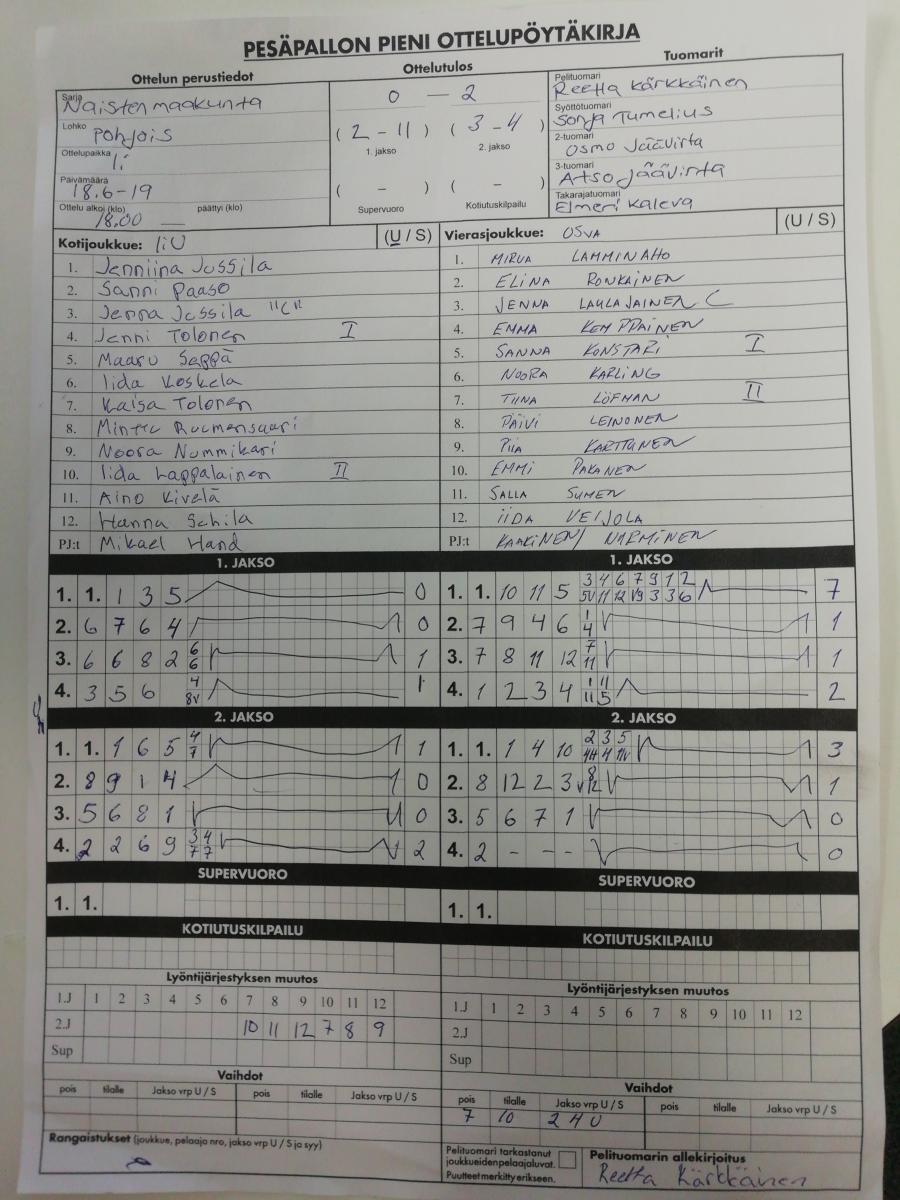 PESÄPALLON PIENI OTTELUPÖYTÄKIRJA
Ottelun perustiedot
Ottelutulos
Tuomarit
Sarja
Naisten maakunta
Lohko
Pohjois
Ottelupaikka
Ii
Päivämäärä
18.6-19
Ottelu alkoi (klo) päättyi (klo)
18.00
0 — 2
( 2 - 11 ) ( 3 - 4 )
1. jakso 2. jakso
( - ) ( - )
Supervuoro Kotiutuskilpailu
Pelituomari
Reetta Kärkkäinen
Syöttötuomari
Sonja Tumelius
2-tuomari
Osmo Jäävirta
3-tuomari
Atso Jäävirta
Takarajatuomari
Elmeri Kaleva
Kotijoukkue: IiU (U / S)
1. Jenniina Jussila
2. Sanni Paaso
3. Jenna Jussila "C"
4. Jenni Tolonen I
5. Maaru Seppä
6. Iida Koskela
7. Kaisa Tolonen
8. Minttu Ruumensaari
9. Noora Nummikari
10. Iida Lappalainen II
11. Aino Kivelä
12. Hanna Schila
PJ:t Mikael Hand
Vierasjoukkue: OSVA (U / S)
1. MIRVA LAMMINAHO
2. ELINA RONKAINEN
3. JENNA LAULAJAINEN C
4. EMMA KEMPPAINEN
5. SANNA KONSTARI I
6. NOORA KARLING
7. TIINA LÖFMAN II
8. PÄIVI LEINONEN
9. PIIA KARTTUNEN
10. EMMI PAKANEN
11. SALLA SUMEN
12. IIDA VEIJOLA
PJ:t KAAKINEN / NURMINEN
1. JAKSO
1. 1. 1 3 5 0
2. 6 7 6 4 0
3. 6 6 8 2 6 6 1
4. 3 5 6 4 8v 1
1. JAKSO
1. 1. 10 11 5 3 4 6 7 9 1 2
5V 11 12 V9 3 3 6 7
2. 7 9 4 6 1 4 1
3. 7 8 11 12 7 11 1
4. 1 2 3 4 1 11 11 5 2
2. JAKSO
1. 1. 1 6 5 4 7 1
2. 8 9 1 4 0
3. 5 6 8 1 0
4. 2 2 6 9 3 4 7 7 2
2. JAKSO
1. 1. 1 4 10 2 3 5
4 11V 3
2. 8 12 2 3 8 V12 1
3. 5 6 7 1 0
4. 2 - - - 0
SUPERVUORO
1. 1.
SUPERVUORO
1. 1.
KOTIUTUSKILPAILU
KOTIUTUSKILPAILU
Lyöntijärjestyksen muutos
1.J 1 2 3 4 5 6 7 8 9 10 11 12
2.J 10 11 12 7 8 9
Sup
Lyöntijärjestyksen muutos
1.J 1 2 3 4 5 6 7 8 9 10 11 12
2.J
Sup
Vaihdot
pois tilalle Jakso vrp U / S pois tilalle Jakso vrp U / S
Vaihdot
pois tilalle Jakso vrp U / S pois tilalle Jakso vrp U / S
7 10 2 4 U
Rangaistukset (joukkue, pelaaja nro, jakso vrp U / S ja syy)
Pelituomari tarkastanut
joukkueiden pelaajaluvat.
Puutteet merkitty erikseen.
Pelituomarin allekirjoitus
Reetta Kärkkäinen